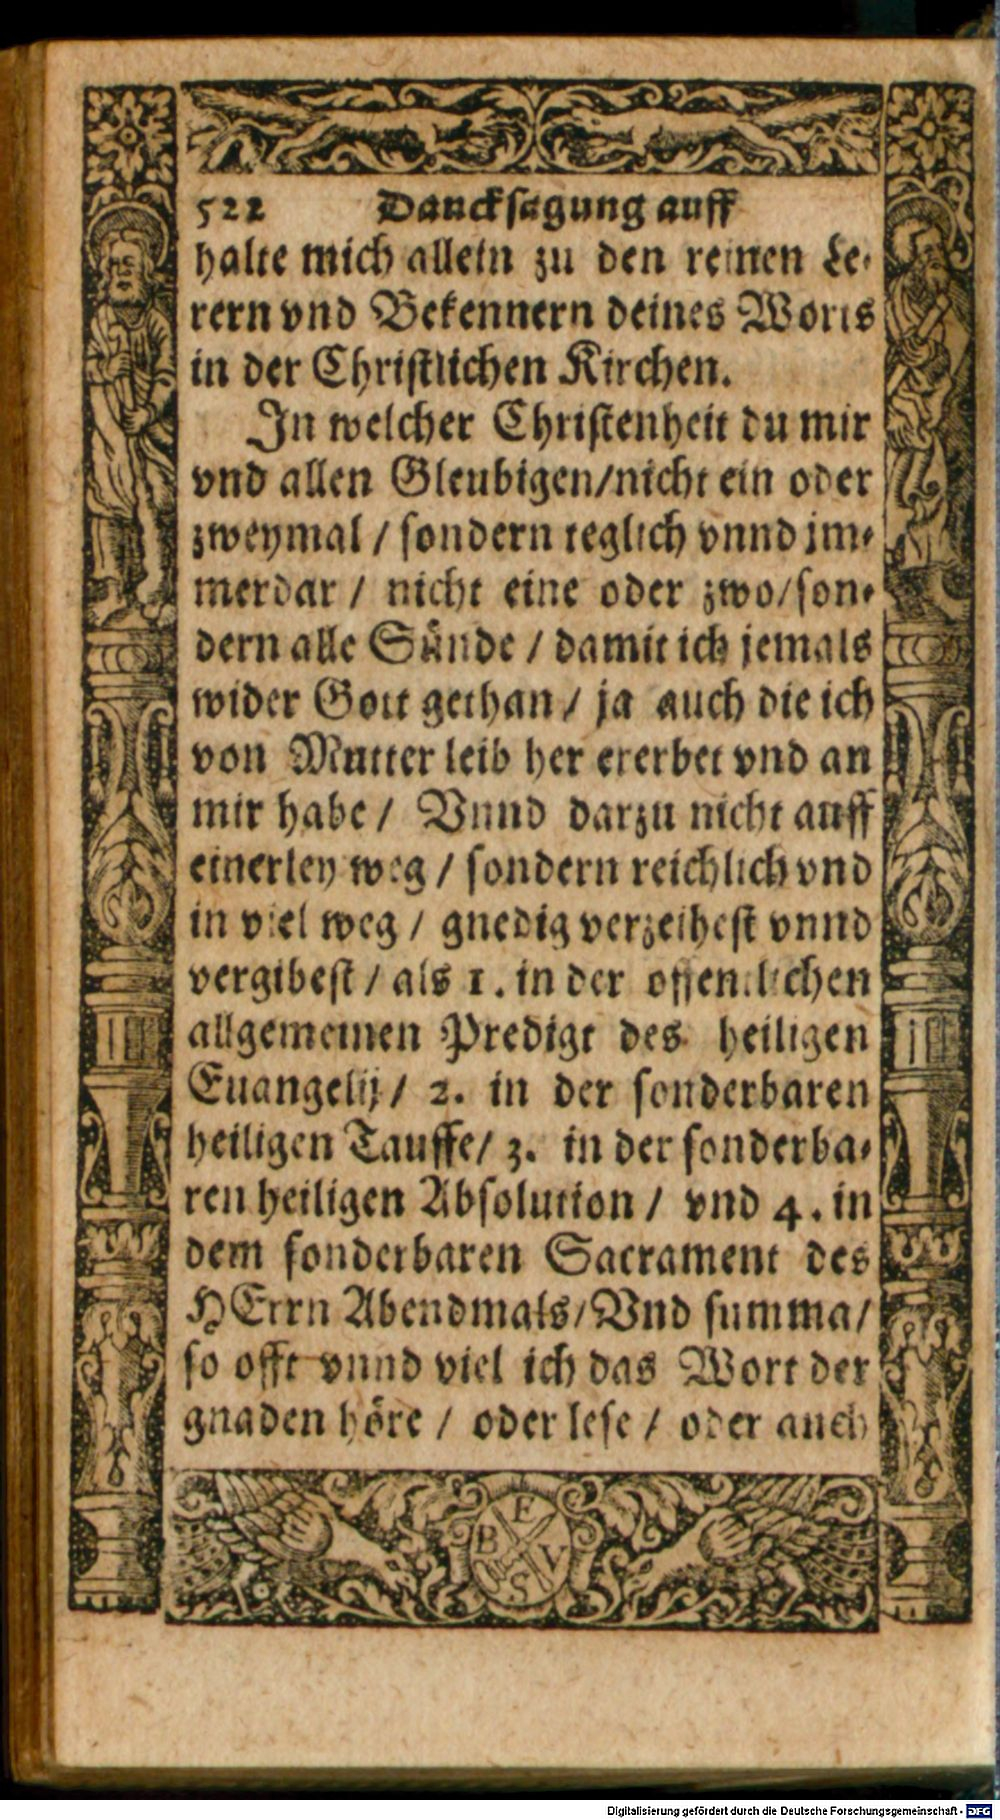 522 Dancksagung auff
halte mich allein zu den reinen Le-
rern vnd Bekennern deines Worts
in der Christlichen Kirchen.
In welcher Christenheit du mir
vnd allen Gleubigen/nicht ein oder
zweymal / sondern teglich vnnd jm-
merdar / nicht eine oder zwo/son-
dern alle Sünde / damit ich jemals
wider Gott gethan / ja auch die ich
von Mutter leib her ererbet vnd an
mir habe / Vnnd darzu nicht auff
einerley weg / sondern reichlich vnd
in viel weg / gnedig verzeihest vnnd
vergibest / als 1. in der offentlichen
allgemeinen Predigt des heiligen
Euangelij / 2. in der sonderbaren
heiligen Tauffe/ 3. in der sonderba-
ren heiligen Absolution / vnd 4. in
dem sonderbaren Sacrament des
HErrn Abendmals/Vnd summa/
so offt vnnd viel ich das Wort der
gnaden höre / oder lese / oder auch
E
B V
S
Digitalisierung gefördert durch die Deutsche Forschungsgemeinschaft - DFG